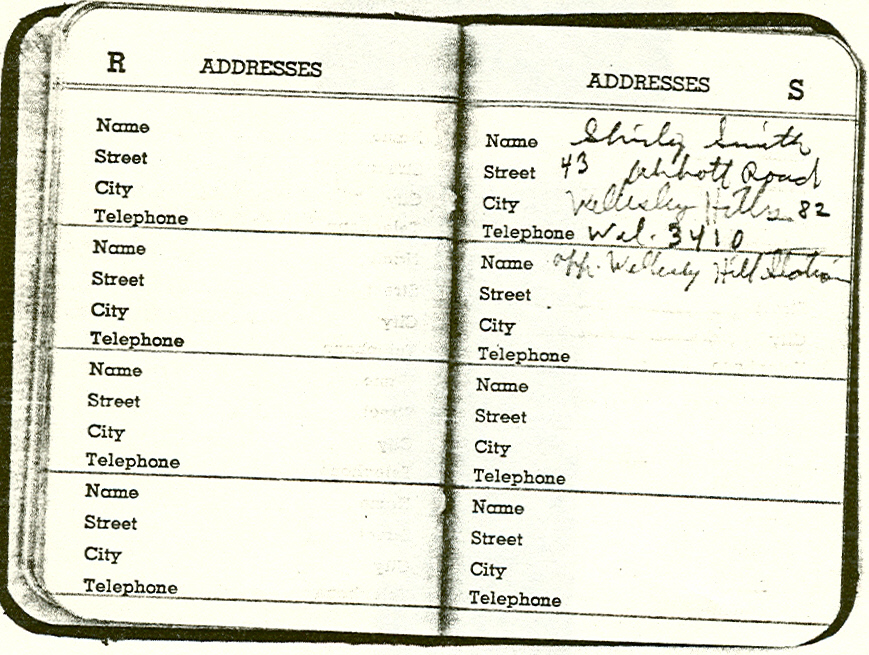 R ADDRESSES
Name
Street
City
Telephone
Name
Street
City
Telephone
Name
Street
City
Telephone
Name
Street
City
Telephone
ADDRESSES S
Name Shirly Smith
Street 43 Abbott Road
City Wellesley Hills 82
Telephone Wel. 3410
Name opp. Wellesly Hill Station
Street
City
Telephone
Name
Street
City
Telephone
Name
Street
City
Telephone